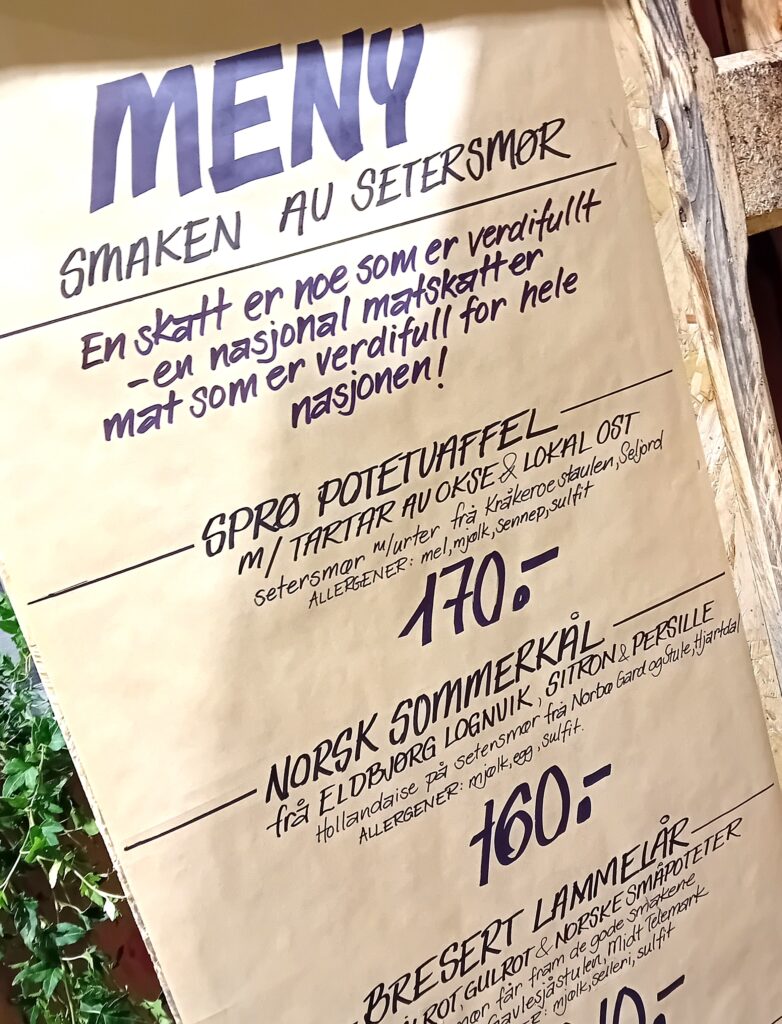 MENY
SMAKEN AV SETERSMØR
En skatt er noe som er verdifullt
-en nasjonal matskatt er
mat som er verdifull for hele
nasjonen!
SPRØ POTETVAFFEL
m/ TARTAR AV OKSE & LOKAL OST
setersmør m/urter frå Kråkeroestaulen, Seljord
ALLERGENER: mel, mjølk, sennep, sulfit
170.-
NORSK SOMMERKÅL
frå ELDBJØRG LOGNVIK, SITRON & PERSILLE
Hollandaise på setersmør frå Norbø Gard og Stule, Hjartdal
ALLERGENER: mjølk, egg, sulfit.
160.-
BRESERT LAMMELÅR
ROT, GULROT & NORSKE SMÅPOTETER
mør får fram de gode smakene
avlesjåstulen, Midt Telemark
mjølk, selleri, sulfit